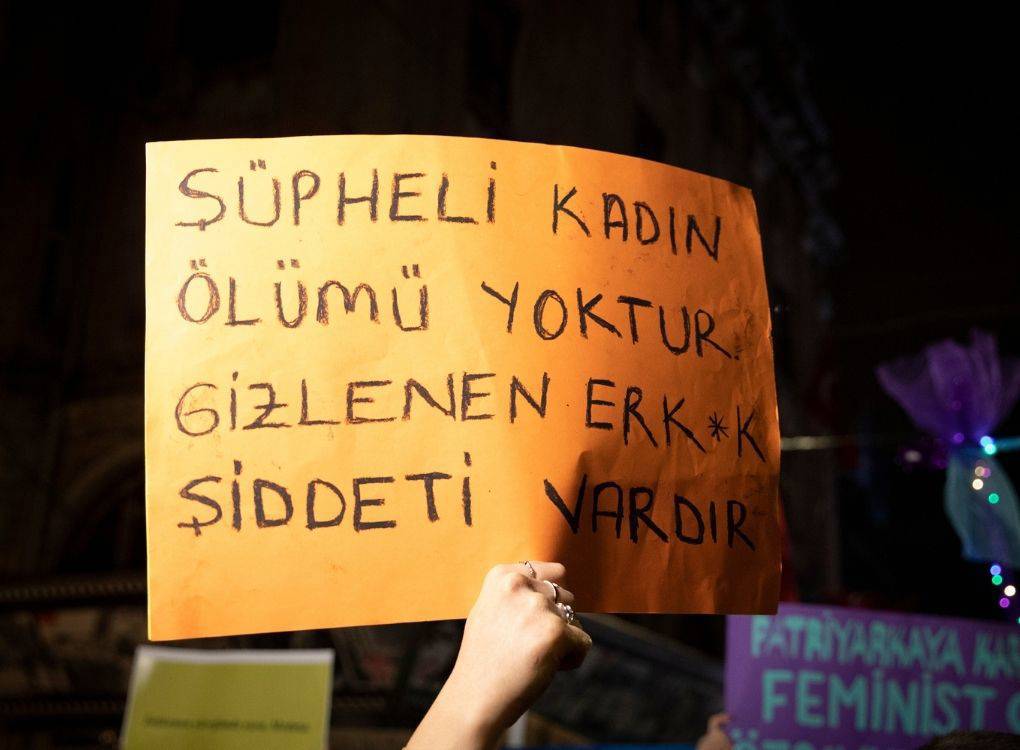 ŞÜPHELİ KADIN
ÖLÜMÜ YOKTUR.
GİZLENEN ERK*K
ŞİDDETİ VARDIR
PATRİYARKAYA
FEMİNİST